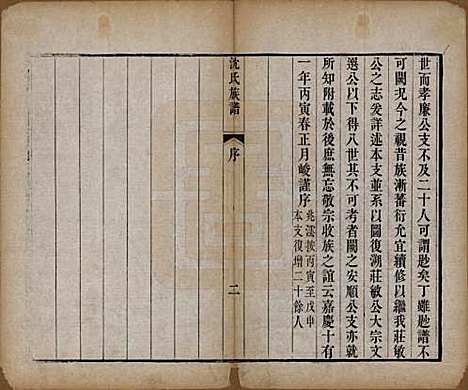 世而孝廉公支不及二十人可謂尠矣丁雖尠譜不
可闕况今之視昔族漸蕃衍尤宜續修以繼我莊敏
公之志爰詳述本支並系以圖復溯莊敏公大宗文
選公以下得八世其不可考者闕之安順公支亦就
所知附載於後庶無忘敬宗收族之誼云嘉慶十有
一年丙寅春正月峻謹序
兆澐按丙寅至戊申
本支復增二十餘人
沈氏族譜
序
二